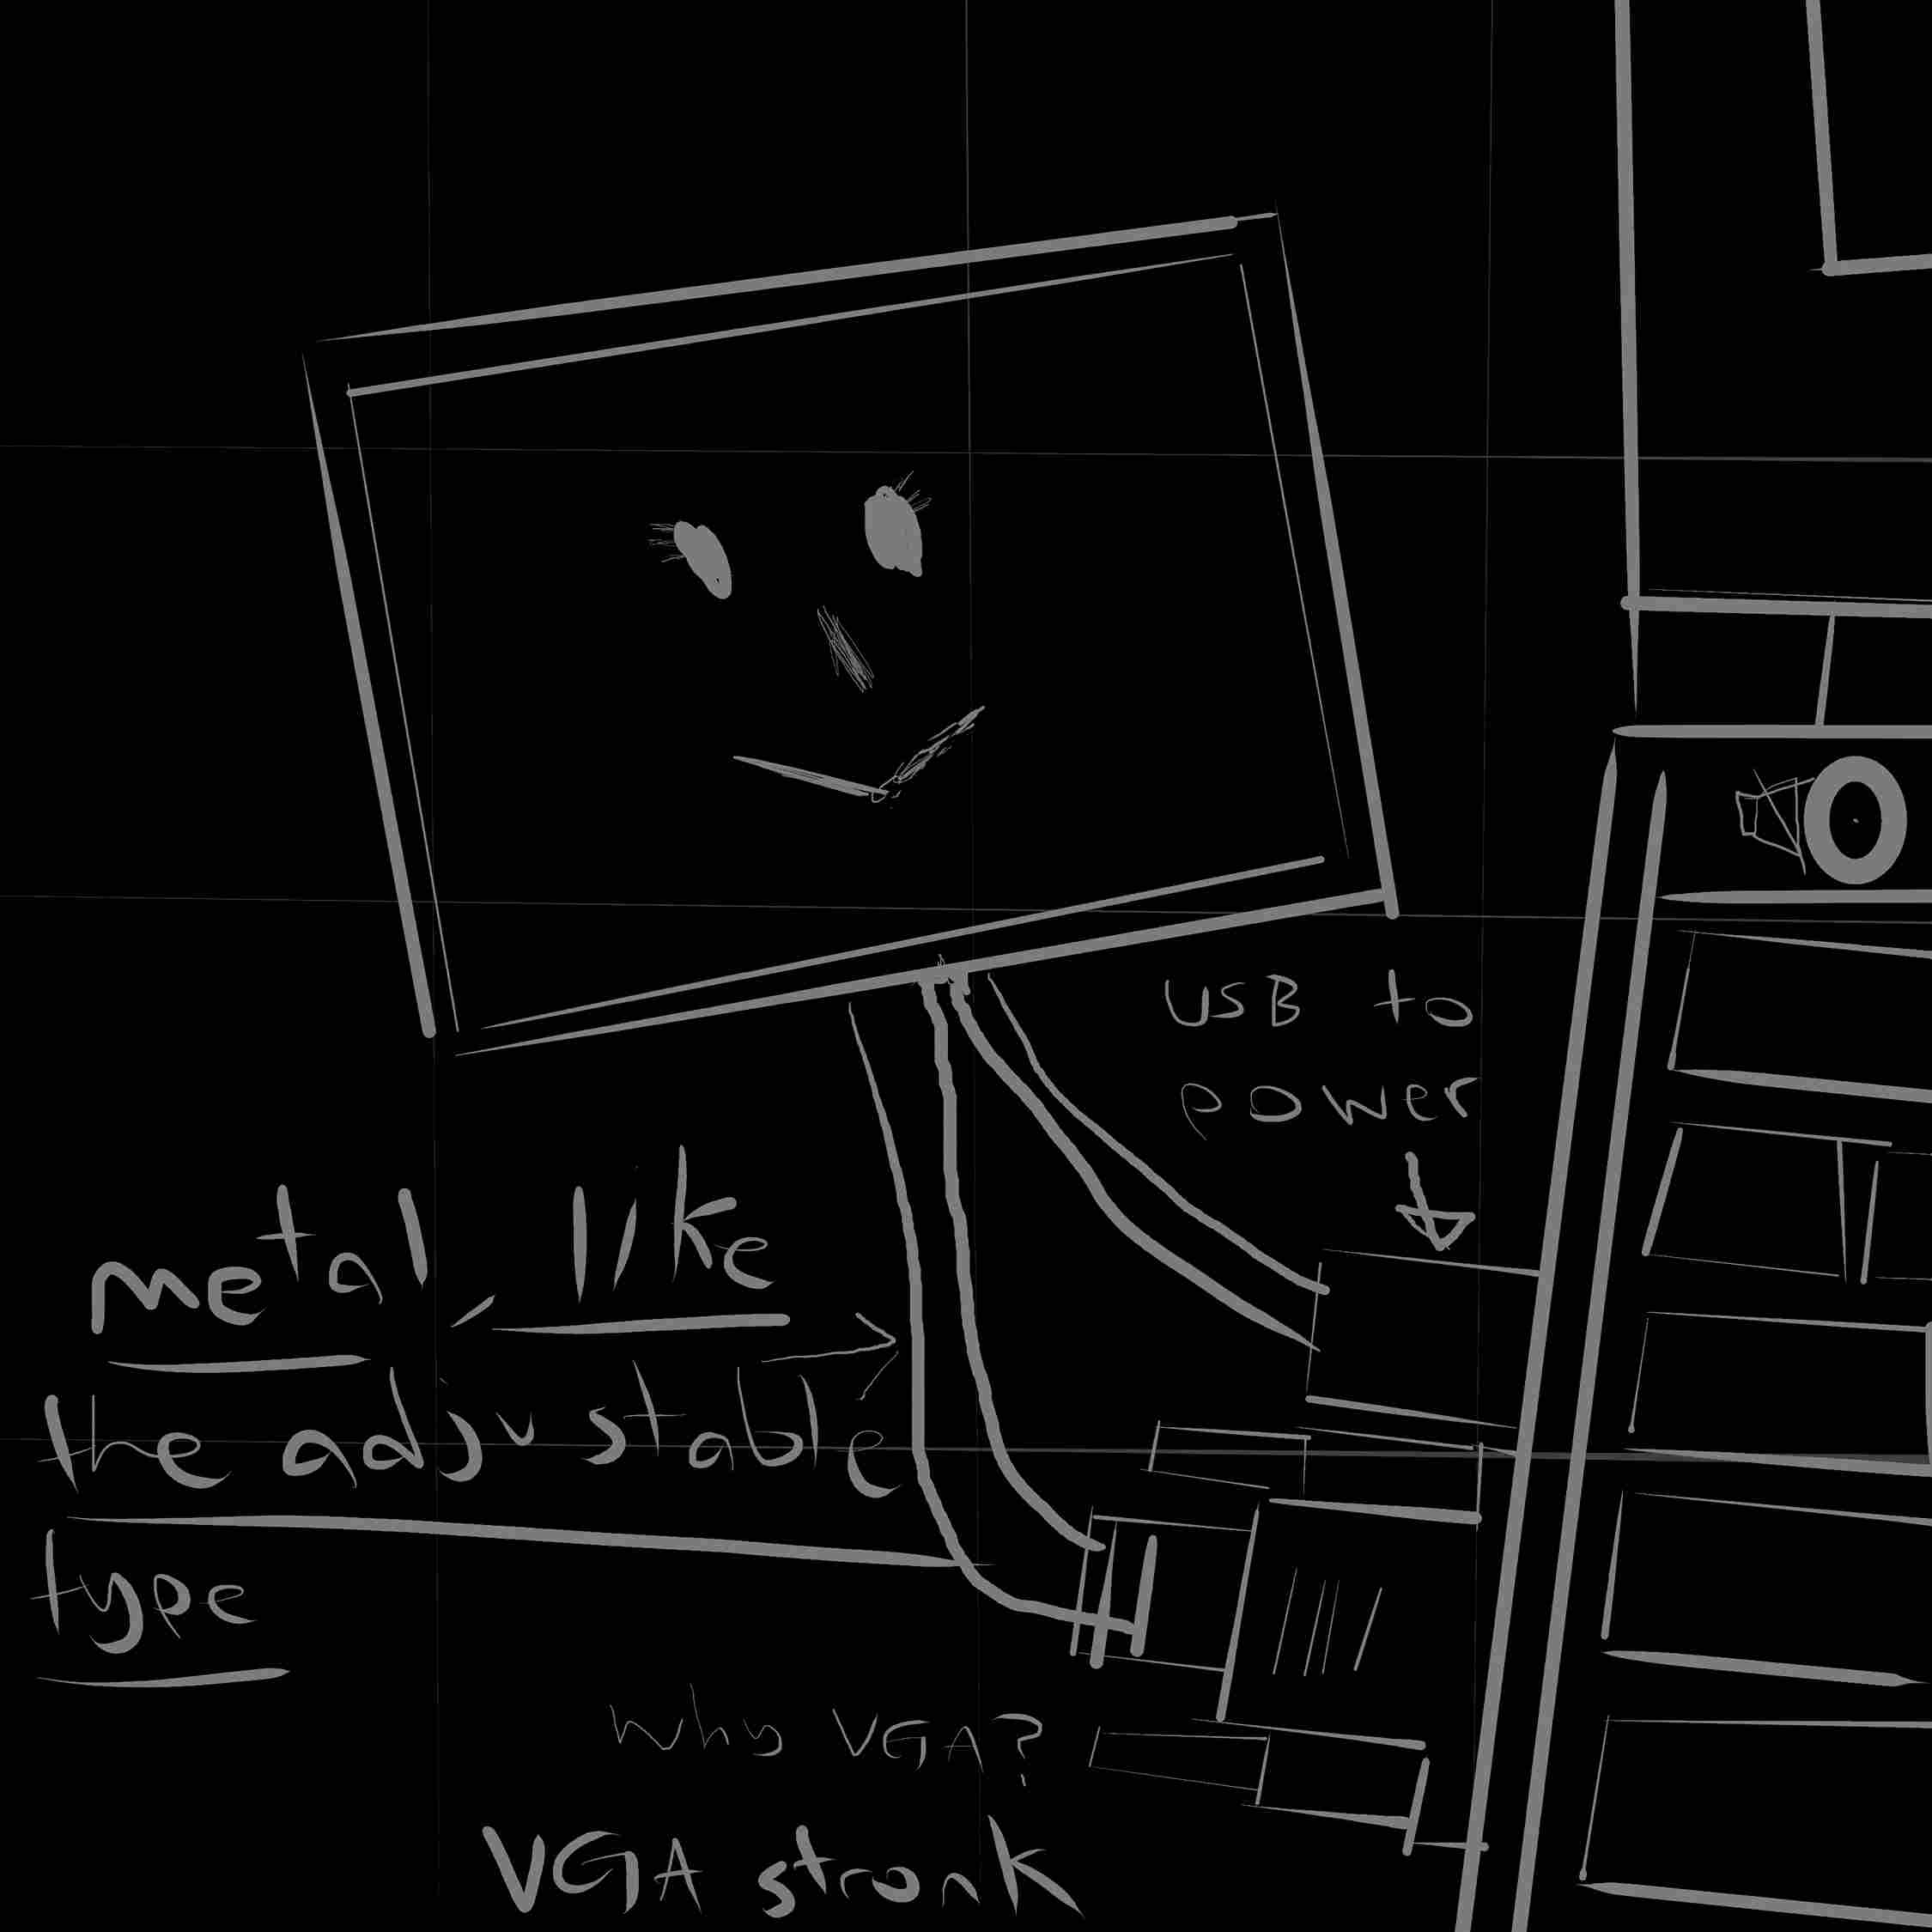 USB to
power
metal like
the adjustable
type
Why VGA?
VGA stronk